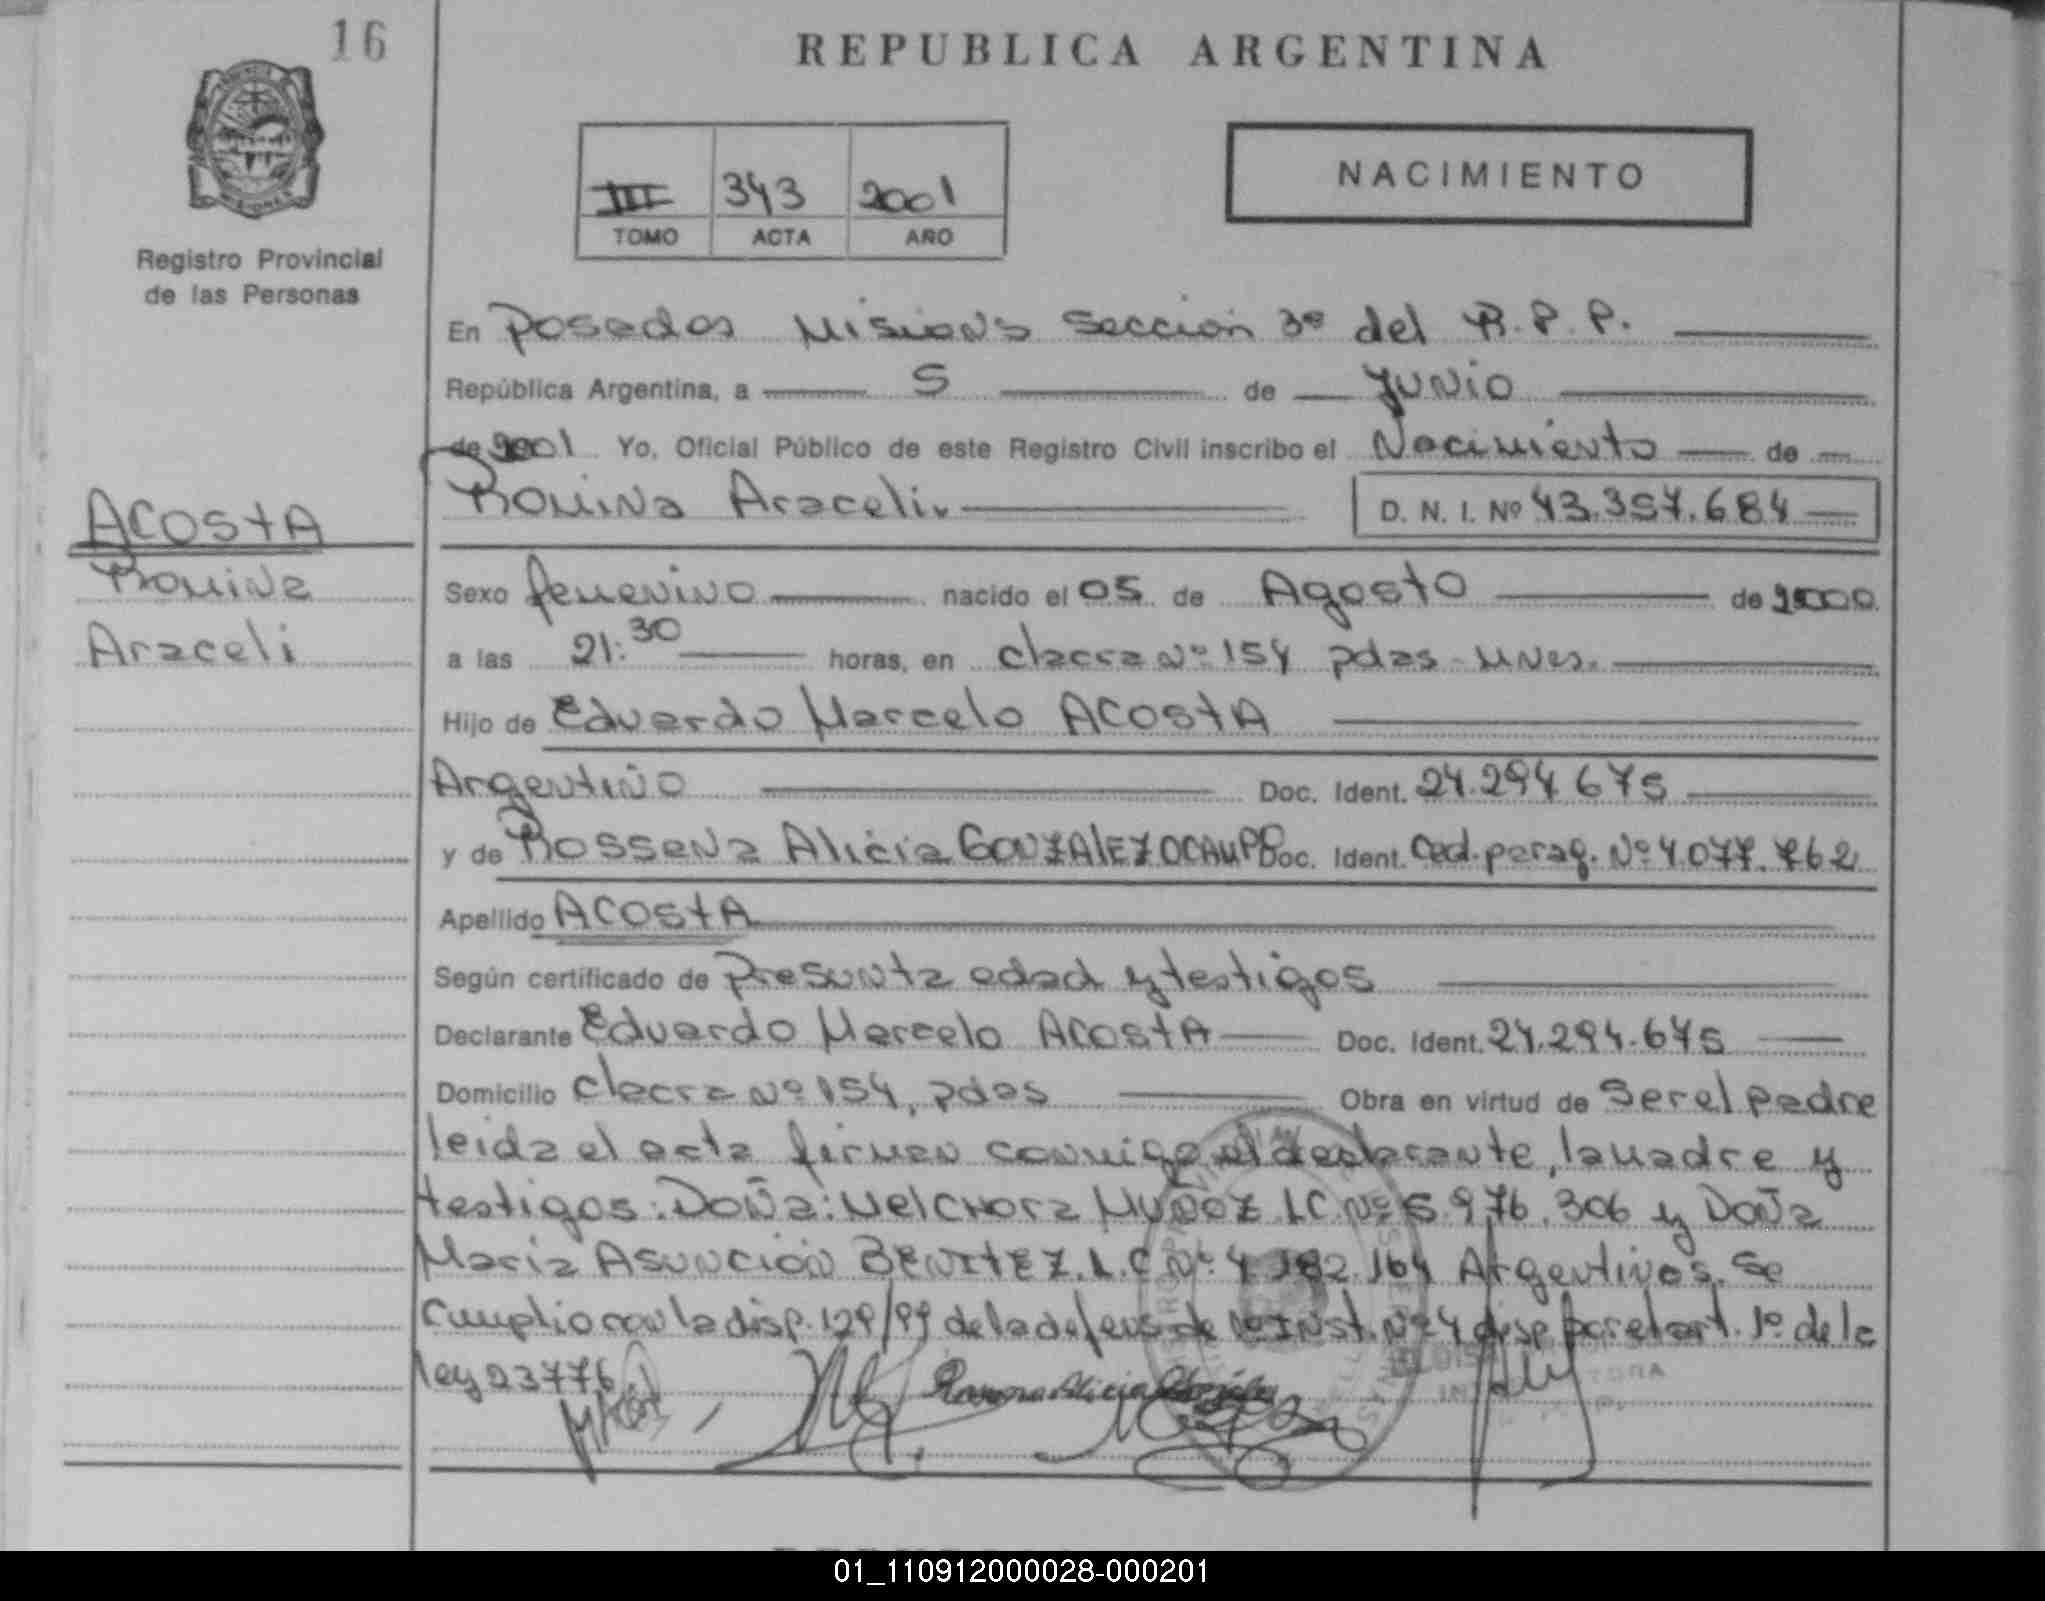 16
REPUBLICA ARGENTINA
III 343 2001
TOMO ACTA AÑO
NACIMIENTO
Registro Provincial
de las Personas
En Posadas Misiones Sección 3º del R.P.P.
República Argentina, a 5 de Junio
de 2001 Yo, Oficial Público de este Registro Civil inscribo el Nacimiento de
Romina Araceli D. N. I. Nº 43.357.684
ACOSTA
Romina
Araceli
Sexo femenino nacido el 05 de Agosto de 2000
a las 21:30 horas, en chacra Nº 154 pdas - Mnes.
Hijo de Eduardo Marcelo ACOSTA
Argentino Doc. Ident. 24.294.675
y de Rossana Alicia GONZALEZ OCAMPO Doc. Ident. Ced. parag. Nº 4.077.762
Apellido ACOSTA
Según certificado de Presunta edad y testigos
Declarante Eduardo Marcelo ACOSTA Doc. Ident. 24.294.675
Domicilio chacra Nº 154, pdas Obra en virtud de Ser el padre
leida el acta firman conmigo el declarante, la madre y
testigos: Doña: Melchora MUÑOZ LC. Nº 5.976.306 y Doña
Maria Asunción BENITEZ. L.C Nº 4.182.164 Argentinos. Se
Cumplio con la disp. 129/99 de la defens de 1º INST. Nº 4 disp por el art. 1º de la
ley 23776
Rossana Alicia González
01_110912000028-000201